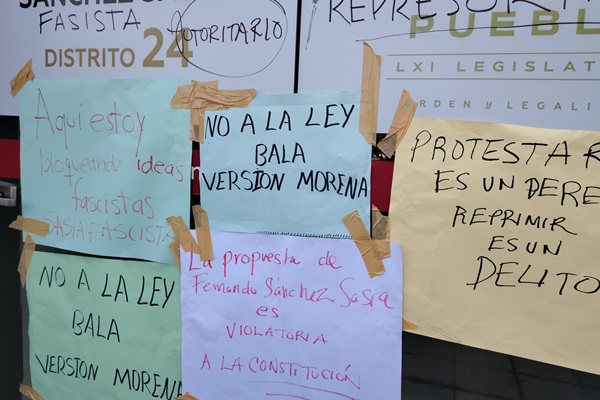 SANCHEZ SAS
FASCISTA
AUTORITARIO
DISTRITO 24
REPRESOR
PUEBL
LXI LEGISLAT
RDEN y LEGALI
Aqui estoy
bloqueando ideas
fascistas
SASIAFASCISTA
NO A LA LEY
BALA
VERSION MORENA
PROTESTAR
ES UN DERE
REPRIMIR
ES UN
DELITO
NO A LA LEY
BALA
VERSION MORENA
La propuesta de
Fernando Sánchez Sasia
es
VIOLATORIA
A LA CONSTITUCIÓN